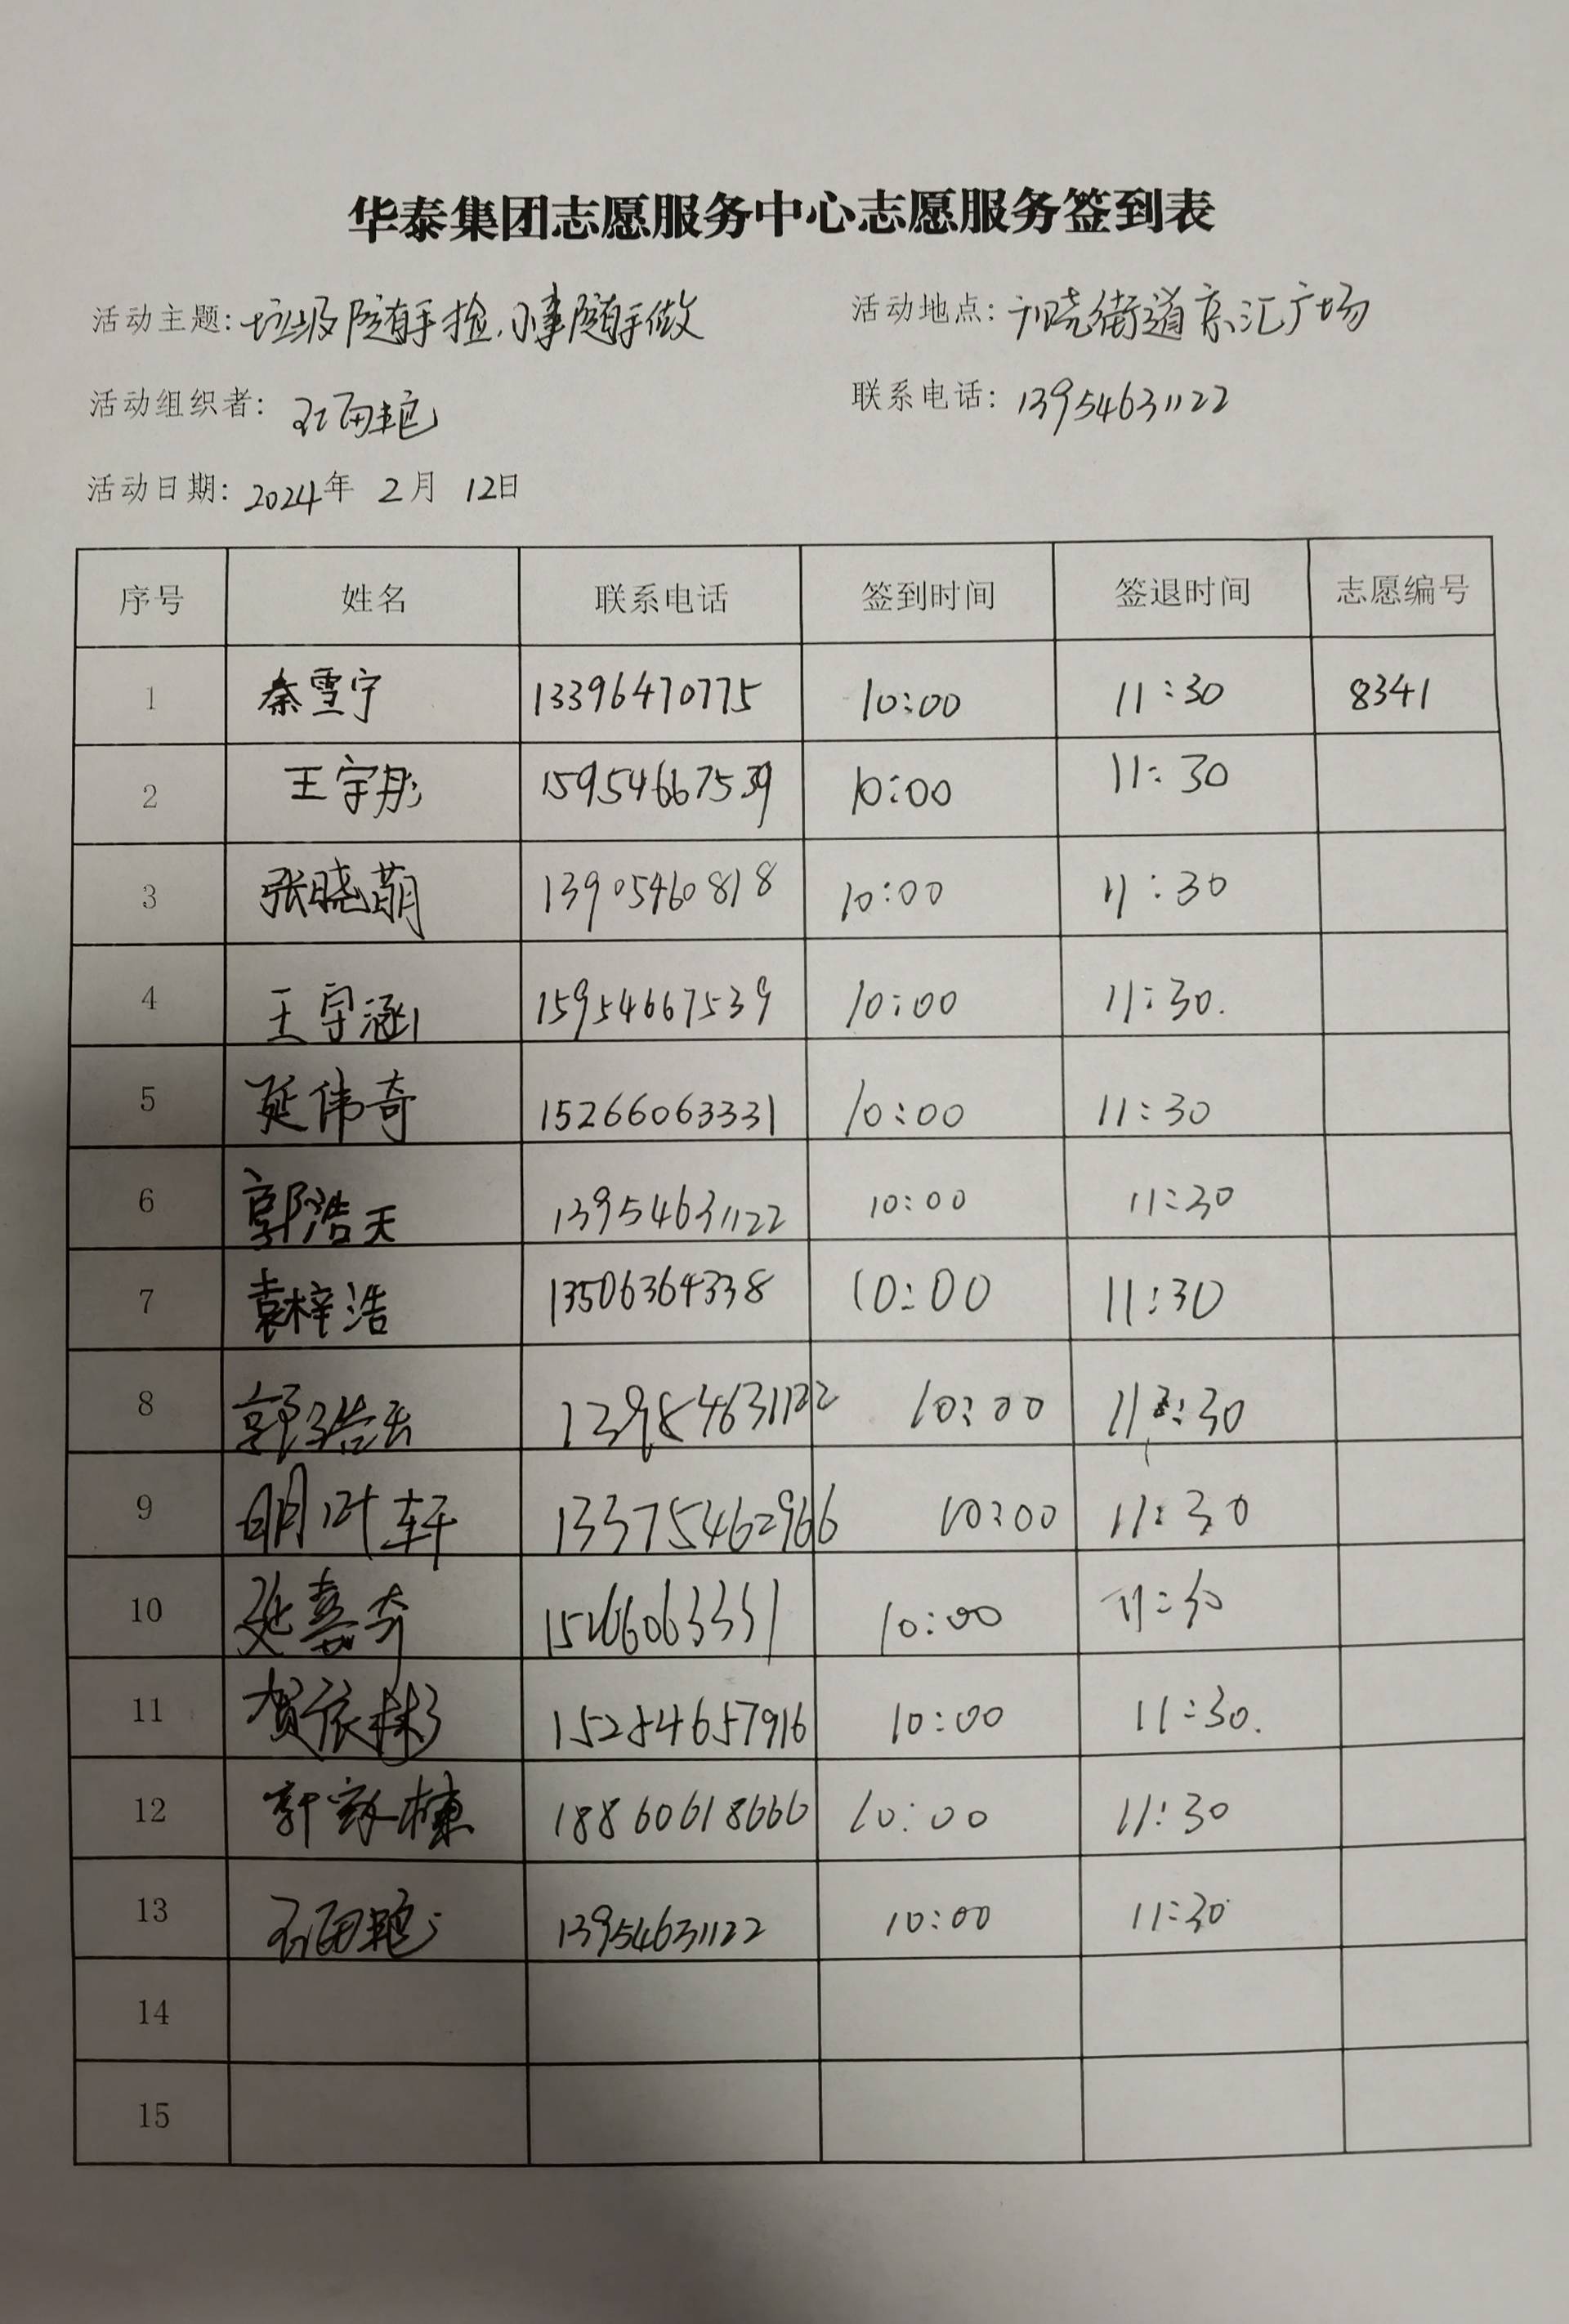 华泰集团志愿服务中心志愿服务签到表
活动主题: 垃圾随手捡,小事随手做 活动地点: 街道京汇广场
活动组织者: 石丽艳 联系电话: 13954631122
活动日期: 2024年 2月 12日
序号 姓名 联系电话 签到时间 签退时间 志愿编号
1 秦雪宁 13396470775 10:00 11:30 8341
2 王宇彤 15954667539 10:00 11:30
3 张晓萌 13905460818 10:00 11:30
4 王宇涵 15954667539 10:00 11:30.
5 延伟奇 15266063331 10:00 11:30
6 郭浩天 13954631122 10:00 11:30
7 袁梓浩 13506364338 10:00 11:30
8 郭浩 10:00 11:30
9 明叶轩 13375462966 10:00 11:30
10 延嘉奇 15266063331 10:00 11:30
11 贺依 15254657916 10:00 11:30.
12 栋 18860618666 10:00 11:30
13 石丽艳 13954631122 10:00 11:30
14
15